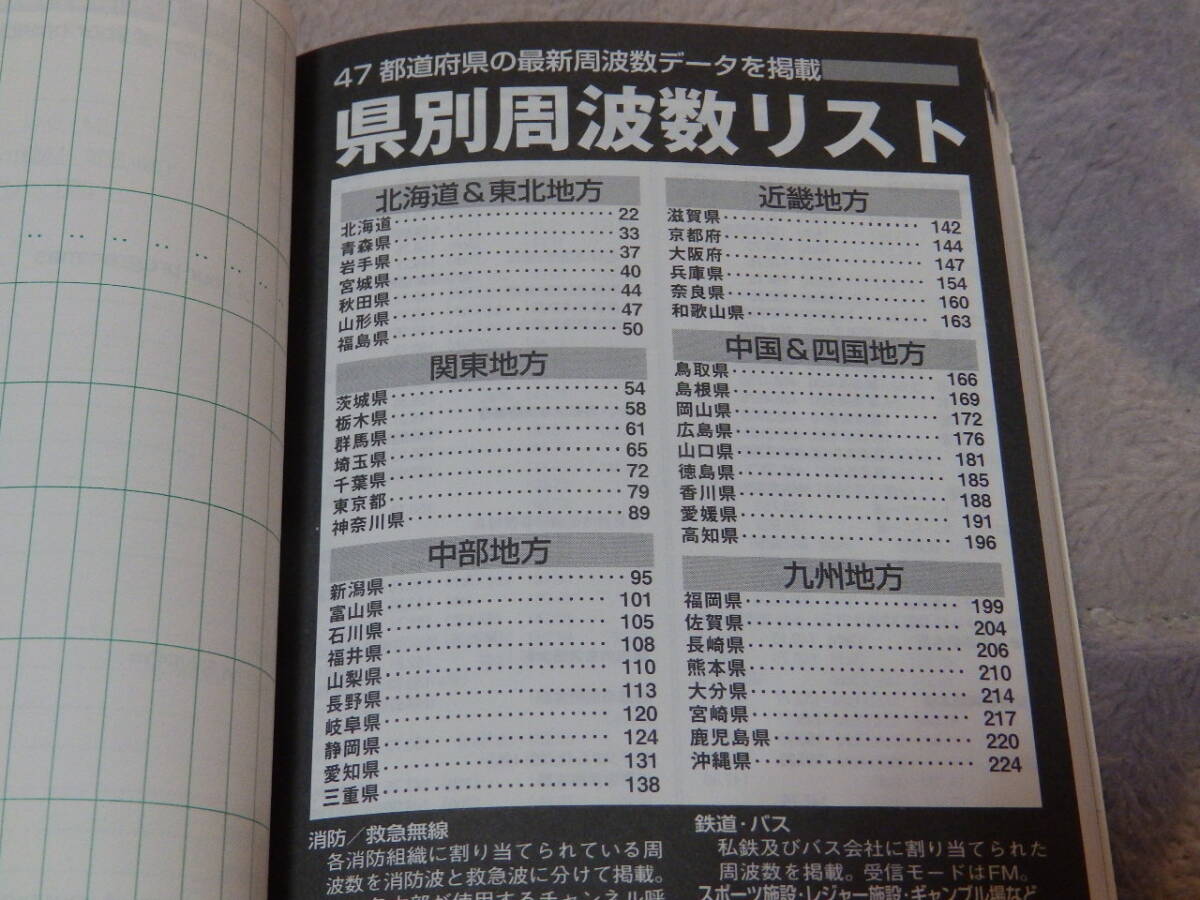 47都道府県の最新周波数データを掲載
県別周波数リスト
北海道&東北地方
北海道 22
青森県 33
岩手県 37
宮城県 40
秋田県 44
山形県 47
福島県 50
関東地方
茨城県 54
栃木県 58
群馬県 61
埼玉県 65
千葉県 72
東京都 79
神奈川県 89
中部地方
新潟県 95
富山県 101
石川県 105
福井県 108
山梨県 110
長野県 113
岐阜県 120
静岡県 124
愛知県 131
三重県 138
近畿地方
滋賀県 142
京都府 144
大阪府 147
兵庫県 154
奈良県 160
和歌山県 163
中国&四国地方
鳥取県 166
島根県 169
岡山県 172
広島県 176
山口県 181
徳島県 185
香川県 188
愛媛県 191
高知県 196
九州地方
福岡県 199
佐賀県 204
長崎県 206
熊本県 210
大分県 214
宮崎県 217
鹿児島県 220
沖縄県 224
消防/救急無線
各消防組織に割り当てられている周
波数を消防波と救急波に分けて掲載。
が使用するチャンネル呼
鉄道・バス
私鉄及びバス会社に割り当てられた
周波数を掲載。受信モードはFM。
スポーツ施設・レジャー施設・ギャンブル場など